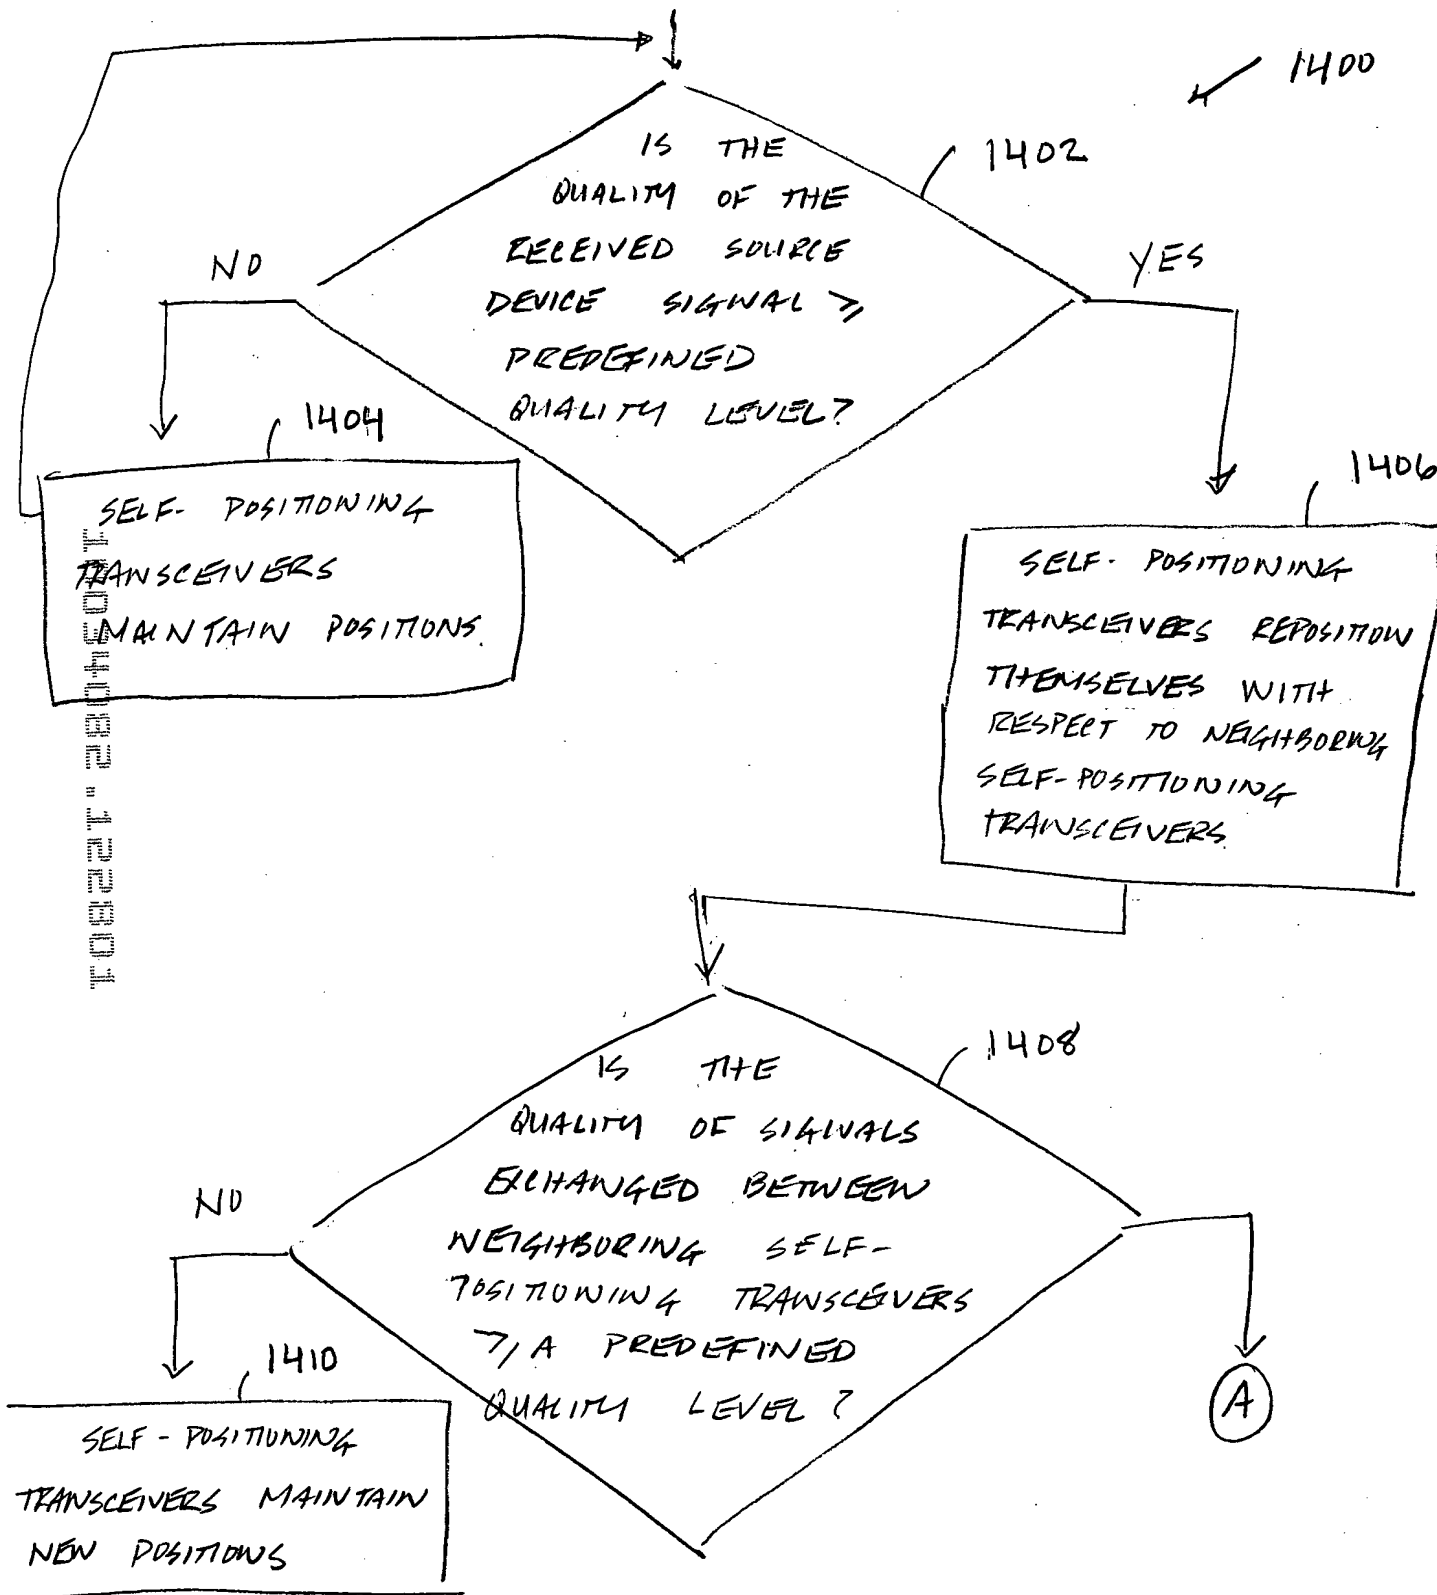 1400
IS THE
QUALITY OF THE
RECEIVED SOURCE
DEVICE SIGNAL ≥
PREDEFINED
QUALITY LEVEL?
1402
NO
YES
1404
SELF- POSITIONING
TRANSCEIVERS
MAINTAIN POSITIONS.
1406
SELF- POSITIONING
TRANSCEIVERS REPOSITION
THEMSELVES WITH
RESPECT TO NEIGHBORING
SELF-POSITIONING
TRANSCEIVERS.
10054082.122801
1408
IS THE
QUALITY OF SIGNALS
EXCHANGED BETWEEN
NEIGHBORING SELF-
POSITIONING TRANSCEIVERS
≥ A PREDEFINED
QUALITY LEVEL?
NO
A
1410
SELF - POSITIONING
TRANSCEIVERS MAINTAIN
NEW POSITIONS